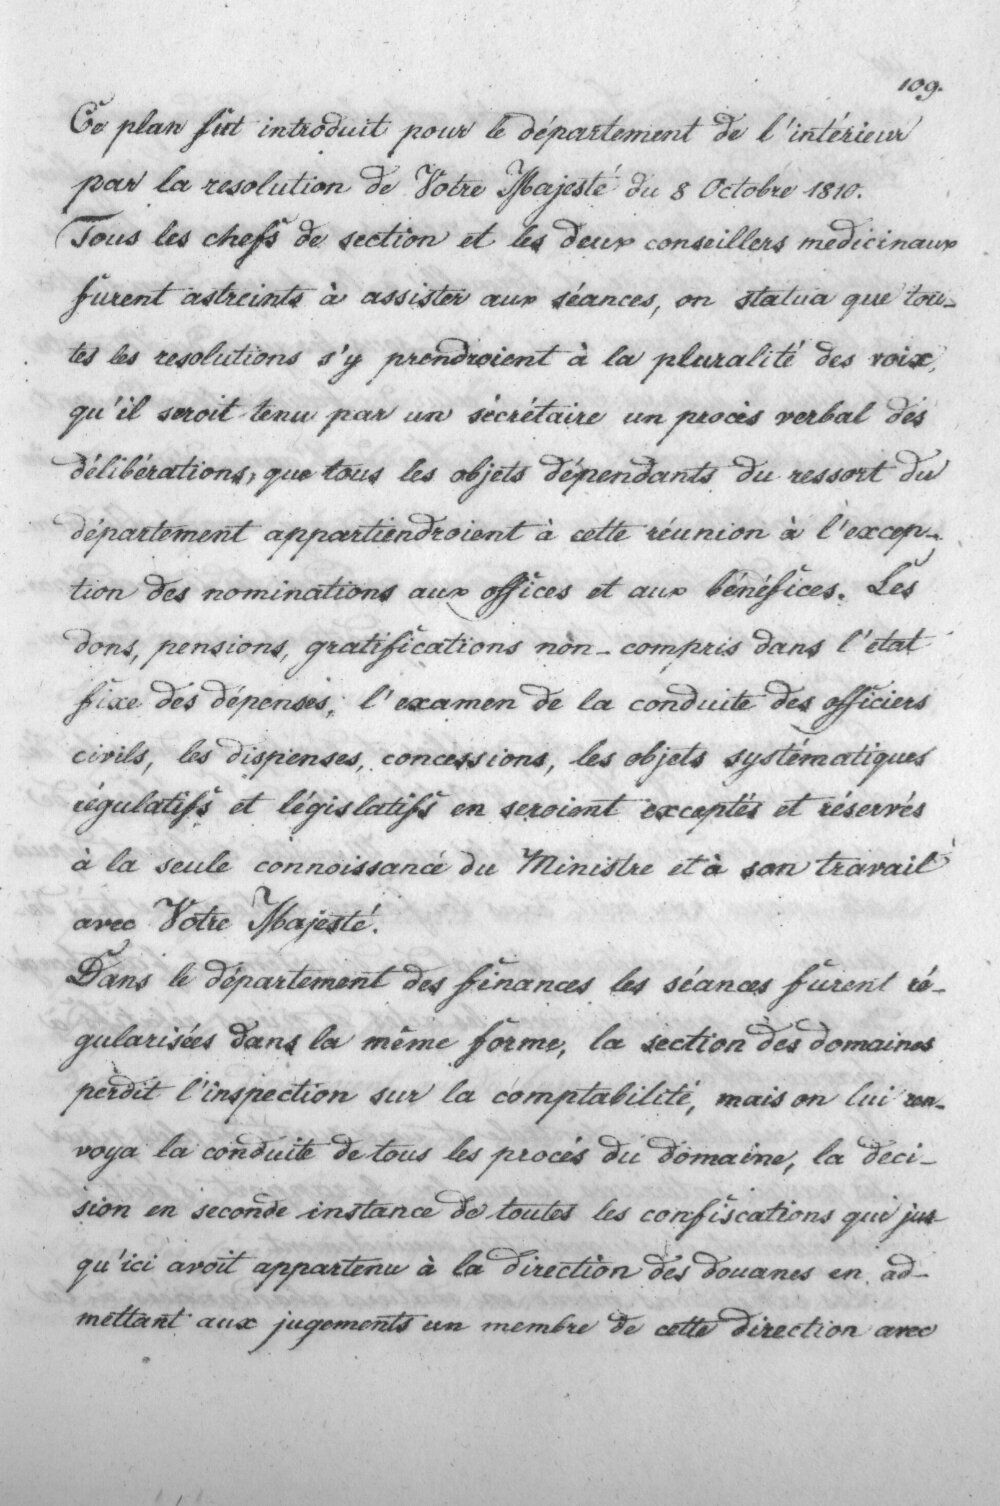 109.
Ce plan fut introduit pour le département de l'intérieur
par la resolution de Votre Majesté du 8 Octobre 1810.
Tous les chefs de section et les deux conseillers medicinaux
furent astreints à assister aux séances, on statua que tou-
tes les resolutions s'y prendroient à la pluralité des voix,
qu'il seroit tenu par un sécrétaire un procès verbal des
délibérations, que tous les objets dépendants du ressort du
département appartiendroient à cette réunion à l'excep-
tion des nominations aux offices et aux bénéfices. Les
dons, pensions, gratifications non-compris dans l'etat
fixe des dépenses, l'examen de la conduite des officiers
civils, les dispenses, concessions, les objets systématiques
régulatifs et législatifs en seroient exceptés et réservés
à la seule connoissance du Ministre et à son travail
avec Votre Majesté.
Dans le département des finances les séances furent ré-
gularisées dans la même forme, la section des domaines
perdit l'inspection sur la comptabilité, mais on lui ren-
voya la conduite de tous les procès du domaine, la deci-
sion en seconde instance de toutes les confiscations qui jus
qu'ici avoit appartenu à la direction des douanes en ad-
mettant aux jugements un membre de cette direction avec